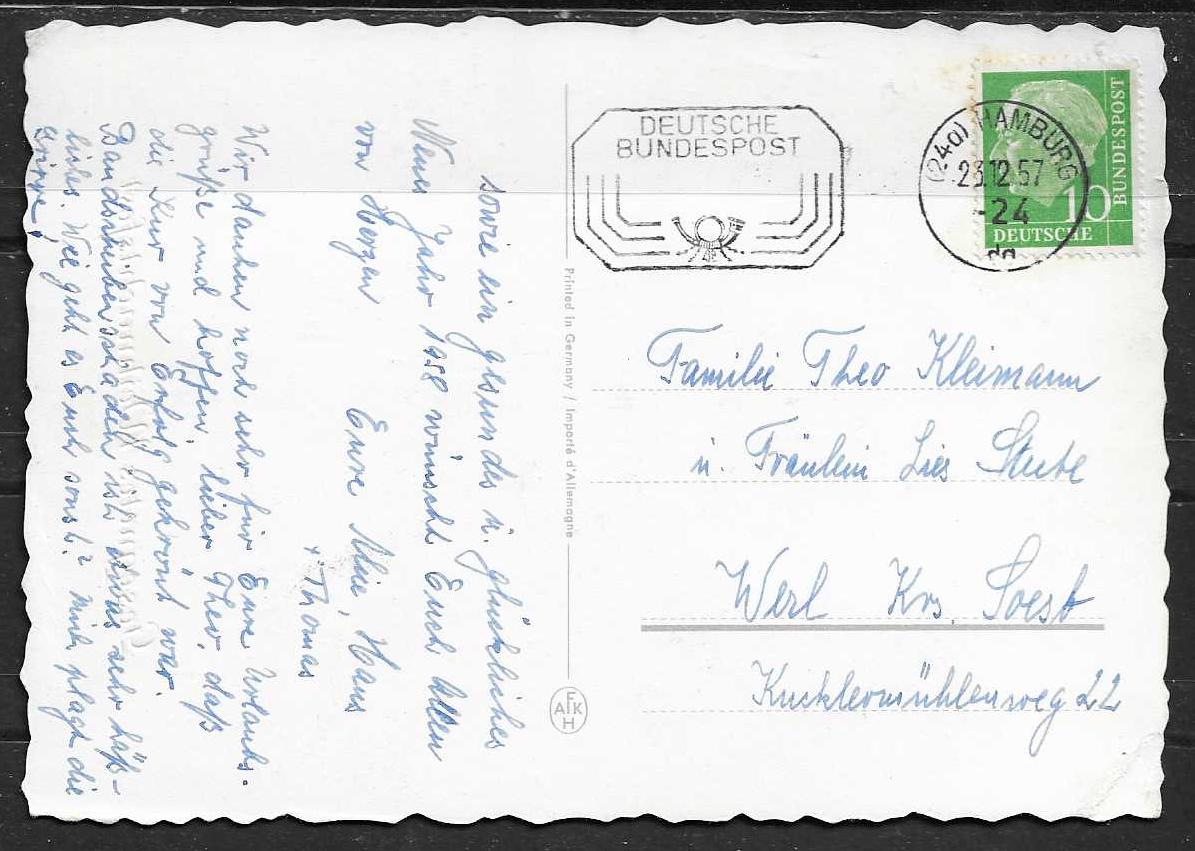 DEUTSCHE
BUNDESPOST
(24a) HAMBURG
23.12.57
-24
BUNDESPOST
10
DEUTSCHE
sowie ein gesundes u. glückliches
Neues Jahr 1958 wünscht Euch allen
von Herzen Eure Mie, Hans
+ Thomas
Wir danken noch sehr für Eure Urlaubs-
grüße und hoffen, lieber Theo, daß
die Kur von Erfolg gekrönt war.
Bandscheibenschaden ist etwas sehr häß-
liches. Wie geht es Euch sonst? Mich plagt die
Grippe!
Printed in Germany / Importé d'Allemagne
AFKH
Familie Theo Kleimann
u. Fräulein Lies Stute
Werl Krs. Soest
Kucklermühlenweg 22